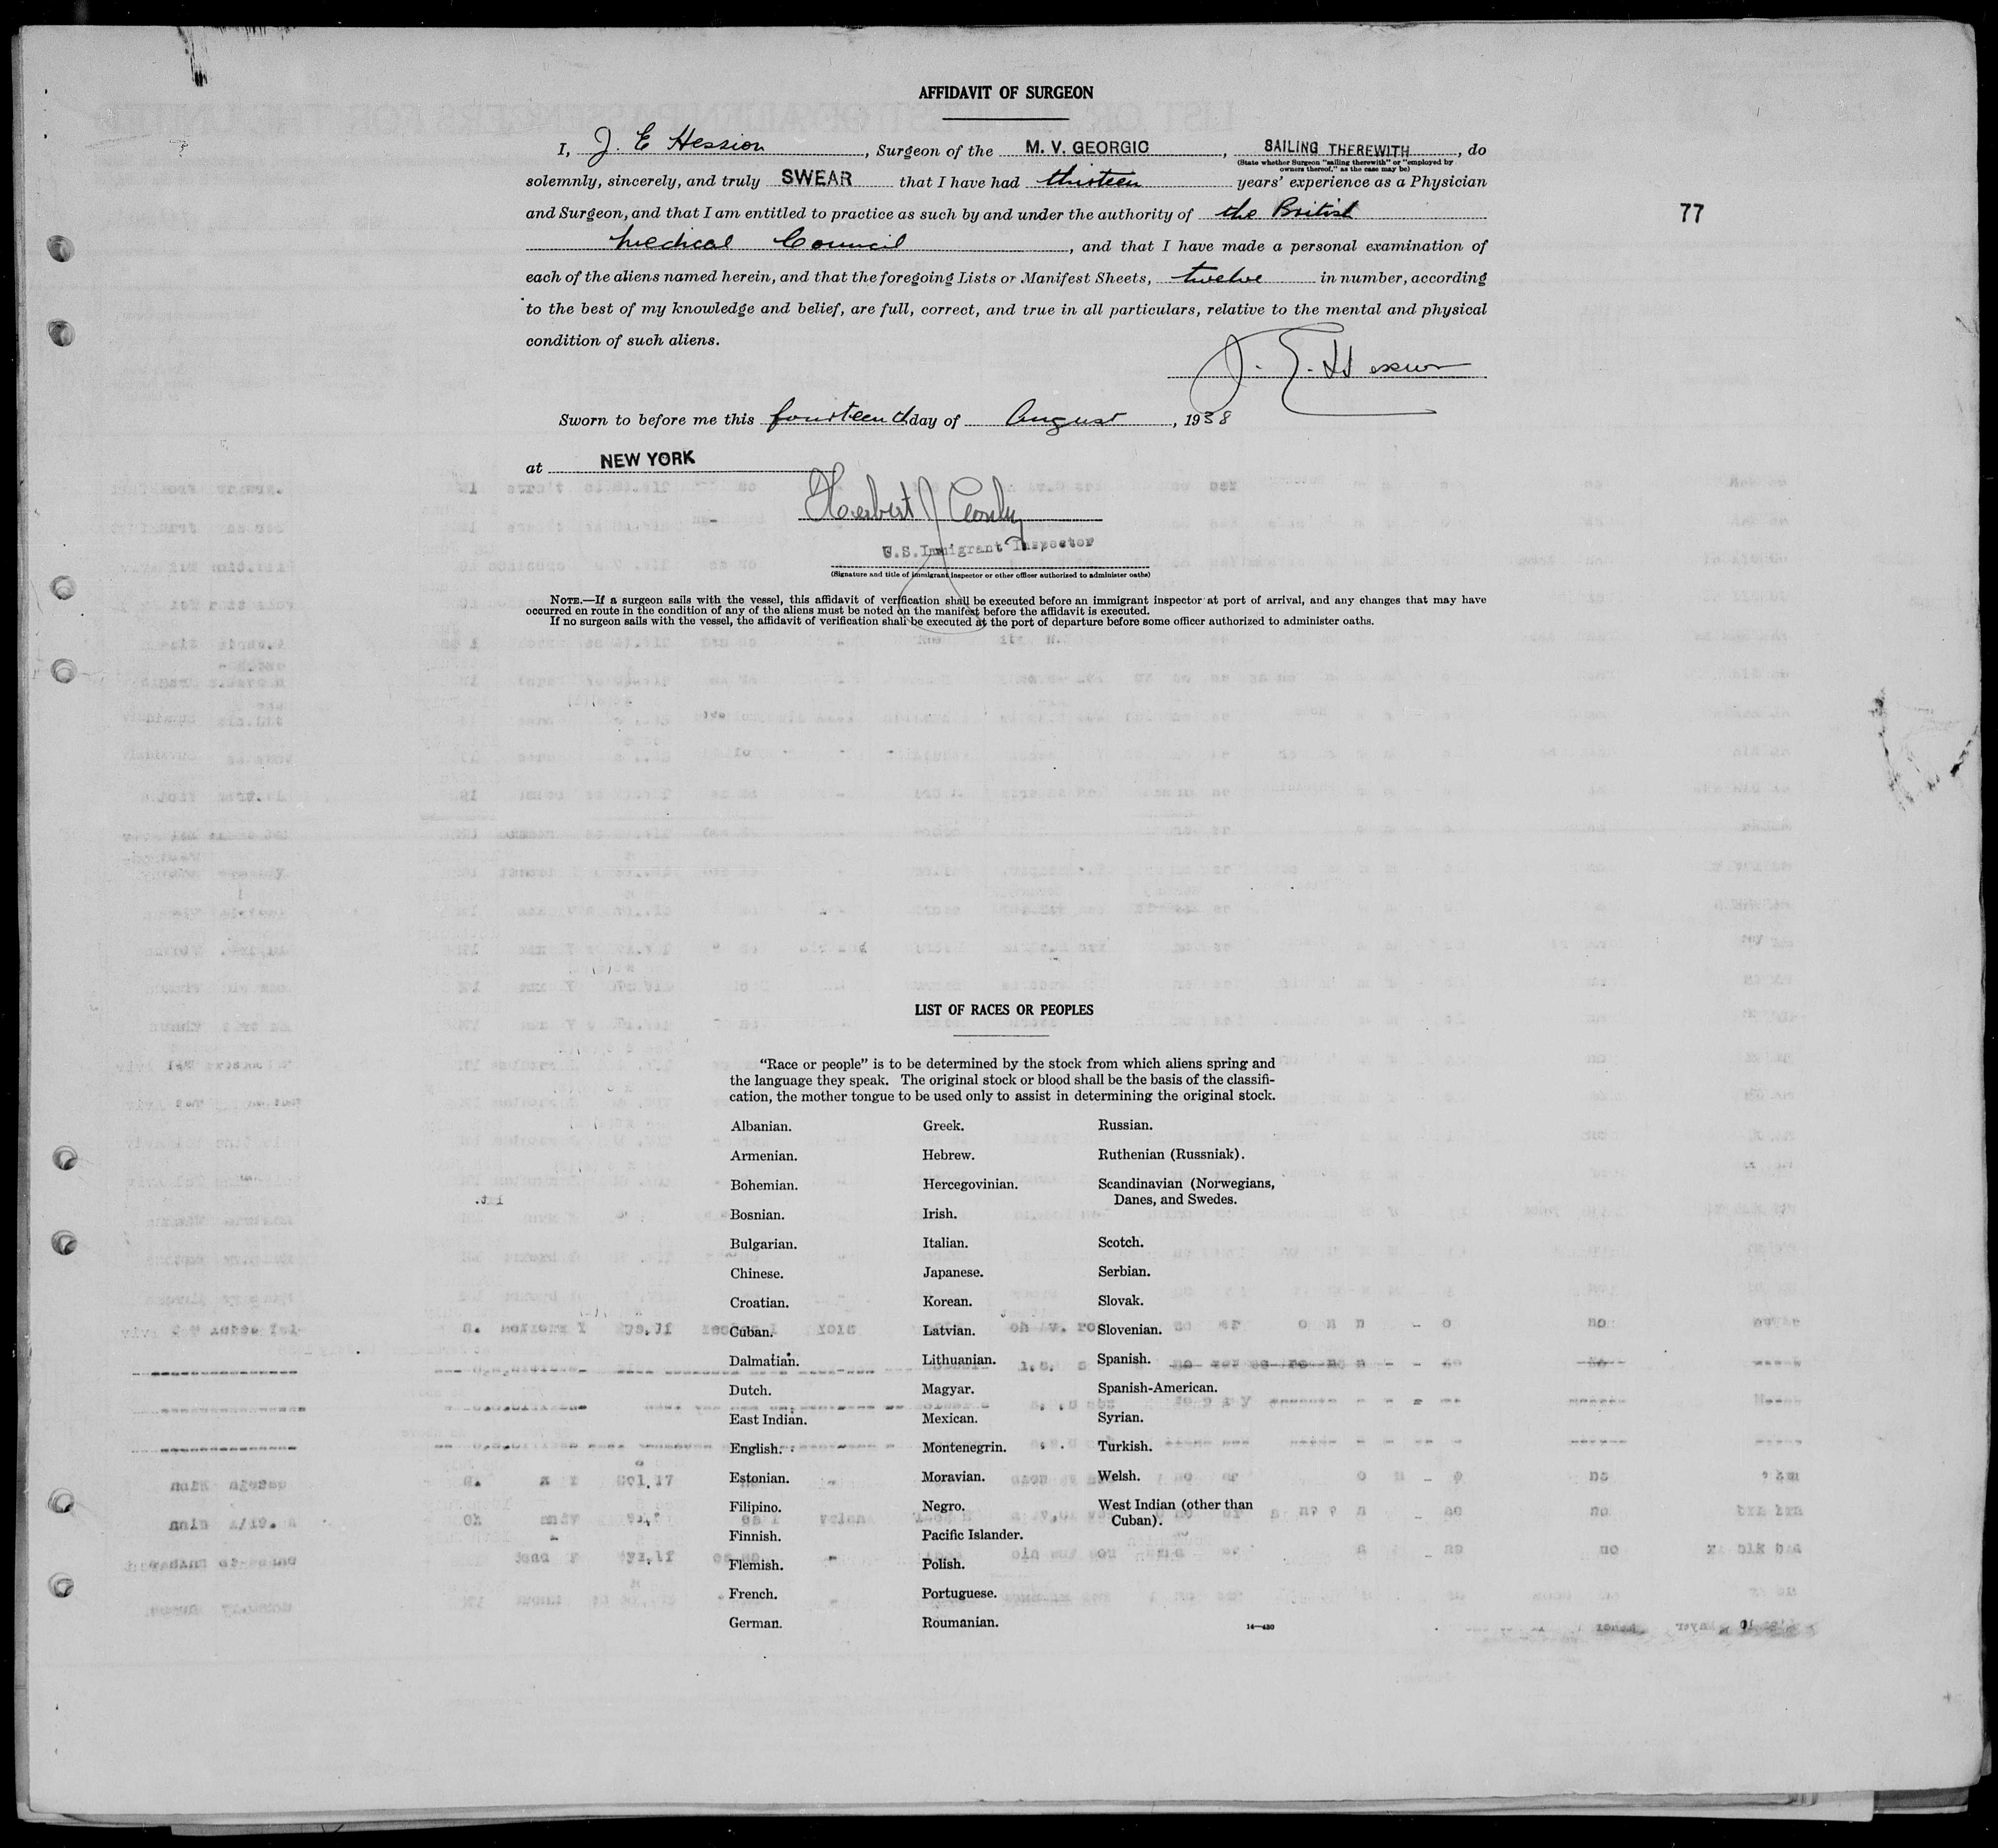 AFFIDAVIT OF SURGEON
I, J. E Hession, Surgeon of the M. V. GEORGIC, SAILING THEREWITH, do
(State whether Surgeon "sailing therewith" or "employed by owners thereof," as the case may be)
solemnly, sincerely, and truly SWEAR that I have had thirteen years' experience as a Physician
and Surgeon, and that I am entitled to practice as such by and under the authority of the British
Medical Council, and that I have made a personal examination of
each of the aliens named herein, and that the foregoing Lists or Manifest Sheets, twelve in number, according
to the best of my knowledge and belief, are full, correct, and true in all particulars, relative to the mental and physical
condition of such aliens.
J. E. Hession
Sworn to before me this fourteenth day of August, 1938
at NEW YORK
Herbert J
U.S. Immigrant Inspector
(Signature and title of immigrant inspector or other officer authorized to administer oaths)
NOTE.—If a surgeon sails with the vessel, this affidavit of verification shall be executed before an immigrant inspector at port of arrival, and any changes that may have
occurred en route in the condition of any of the aliens must be noted on the manifest before the affidavit is executed.
If no surgeon sails with the vessel, the affidavit of verification shall be executed at the port of departure before some officer authorized to administer oaths.
77
LIST OF RACES OR PEOPLES
"Race or people" is to be determined by the stock from which aliens spring and
the language they speak. The original stock or blood shall be the basis of the classifi-
cation, the mother tongue to be used only to assist in determining the original stock.
Albanian.
Armenian.
Bohemian.
Bosnian.
Bulgarian.
Chinese.
Croatian.
Cuban.
Dalmatian.
Dutch.
East Indian.
English.
Estonian.
Filipino.
Finnish.
Flemish.
French.
German.
Greek.
Hebrew.
Hercegovinian.
Irish.
Italian.
Japanese.
Korean.
Latvian.
Lithuanian.
Magyar.
Mexican.
Montenegrin.
Moravian.
Negro.
Pacific Islander.
Polish.
Portuguese.
Roumanian.
Russian.
Ruthenian (Russniak).
Scandinavian (Norwegians,
Danes, and Swedes.
Scotch.
Serbian.
Slovak.
Slovenian.
Spanish.
Spanish-American.
Syrian.
Turkish.
Welsh.
West Indian (other than
Cuban).
14—430